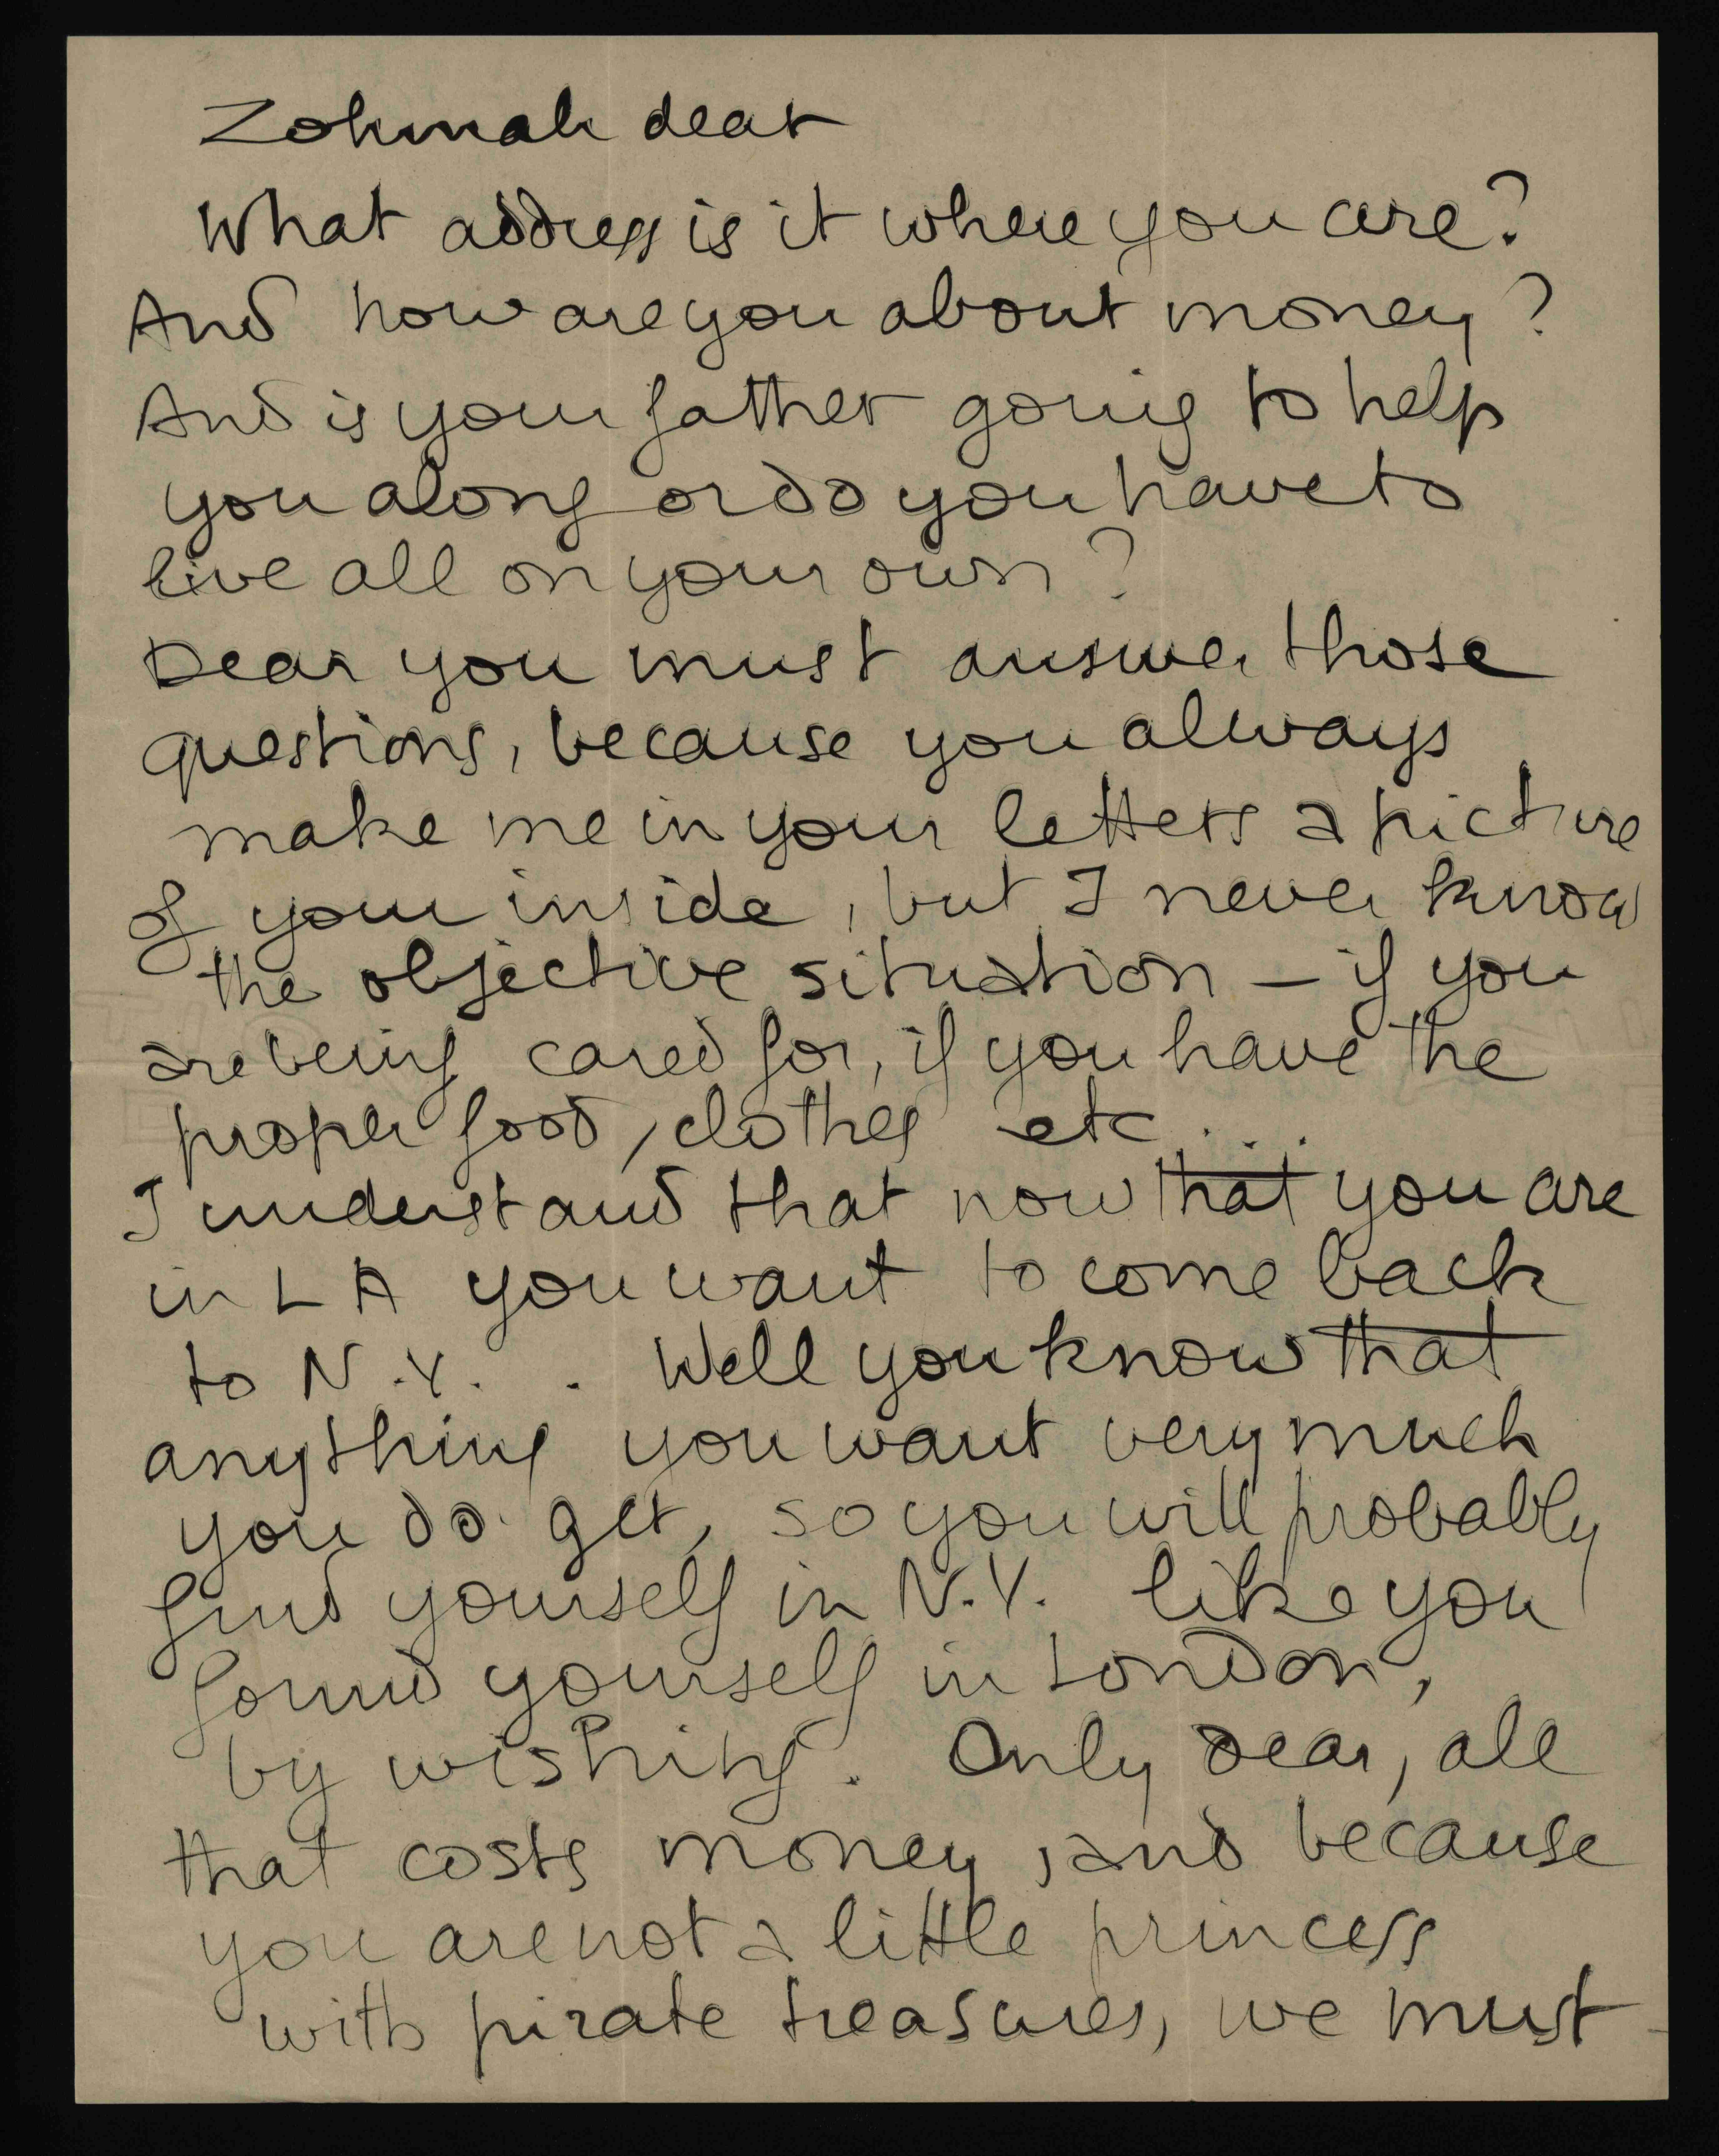 Zohmah dear
What address is it where you are?
And how are you about money?
And is your father going to help
you along or do you have to
live all on your own?
Dear you must answer those
questions, because you always
make me in your letters a picture
of your inside, but I never know
the objective situation – if you
are being cared for, if you have the
proper food, clothes etc....
I understand that now that you are
in L A you want to come back
to N.Y. . Well you know that
anything you want very much
you do get, so you will probably
find yourself in N.Y. like you
found yourself in London,
by wishing. Only dear, all
that costs money, and because
you are not a little princess
with pirate treasures, we must